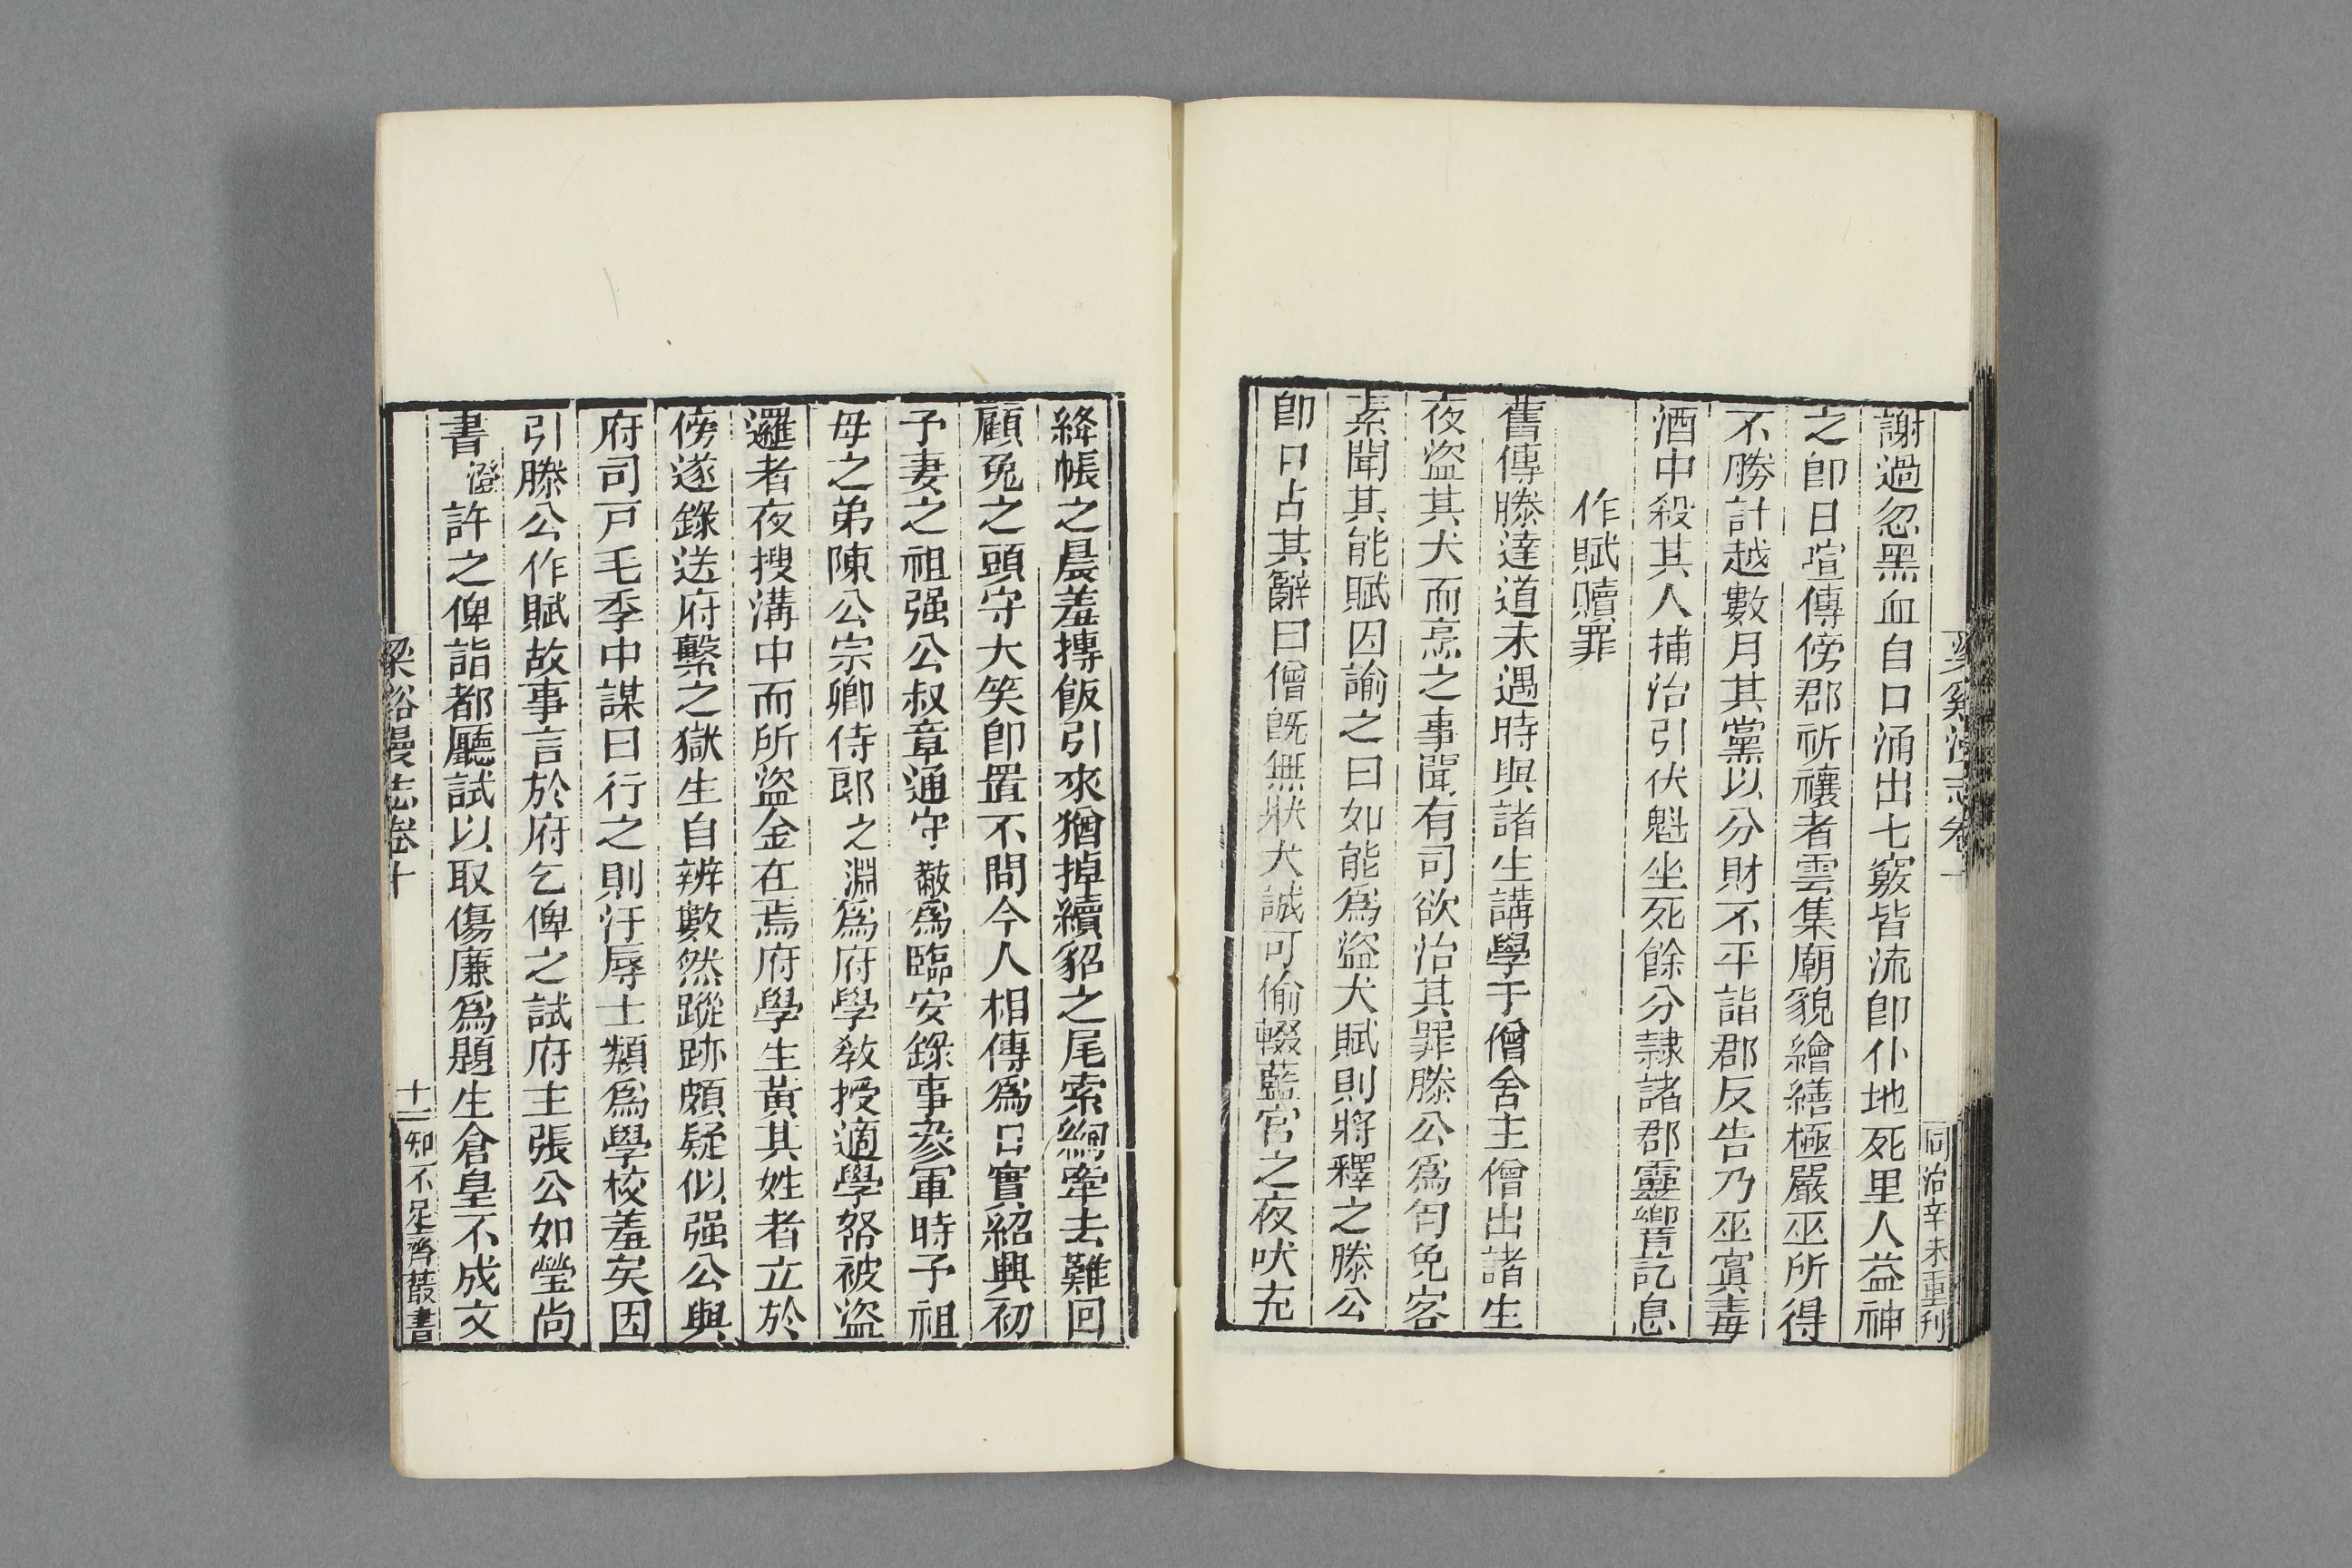 同治辛未重刊
謝過忽黑血自口涌出七竅皆流卽仆地死里人益神
之卽日喧傳傍郡祈禳者雲集廟貌繪繕極嚴巫所得
不勝計越數月其黨以分財不平詣郡反告乃巫寘毒
酒中殺其人捕治引伏魁坐死餘分隸諸郡靈響訖息
作賦贖罪
舊傳滕達道未遇時與諸生講學于僧舍主僧出諸生
夜盜其犬而烹之事聞有司欲治其罪滕公爲匄免客
素聞其能賦因諭之曰如能爲盜犬賦則將釋之滕公
卽口占其辭曰僧旣無狀犬誠可偷輟藍宮之夜吠充
絳帳之晨羞摶飯引來猶掉續貂之尾索綯牽去難回
顧兔之頭守大笑卽置不問今人相傳爲口實紹興初
予妻之祖强公叔章通守 黻爲臨安錄事參軍時予祖
母之弟陳公宗卿侍郞 之淵爲府學敎授適學帑被盜
邏者夜搜溝中而所盜金在焉府學生黃其姓者立於
傍遂錄送府繫之獄生自辨數然蹤跡頗疑似强公與
府司戸毛季中謀曰行之則汙辱士類爲學校羞矣因
引滕公作賦故事言於府乞俾之試府主張公如瑩尙
書 澄許之俾詣都廳試以取傷廉爲題生倉皇不成文
梁谿漫志卷十 十一 知不足齋叢書